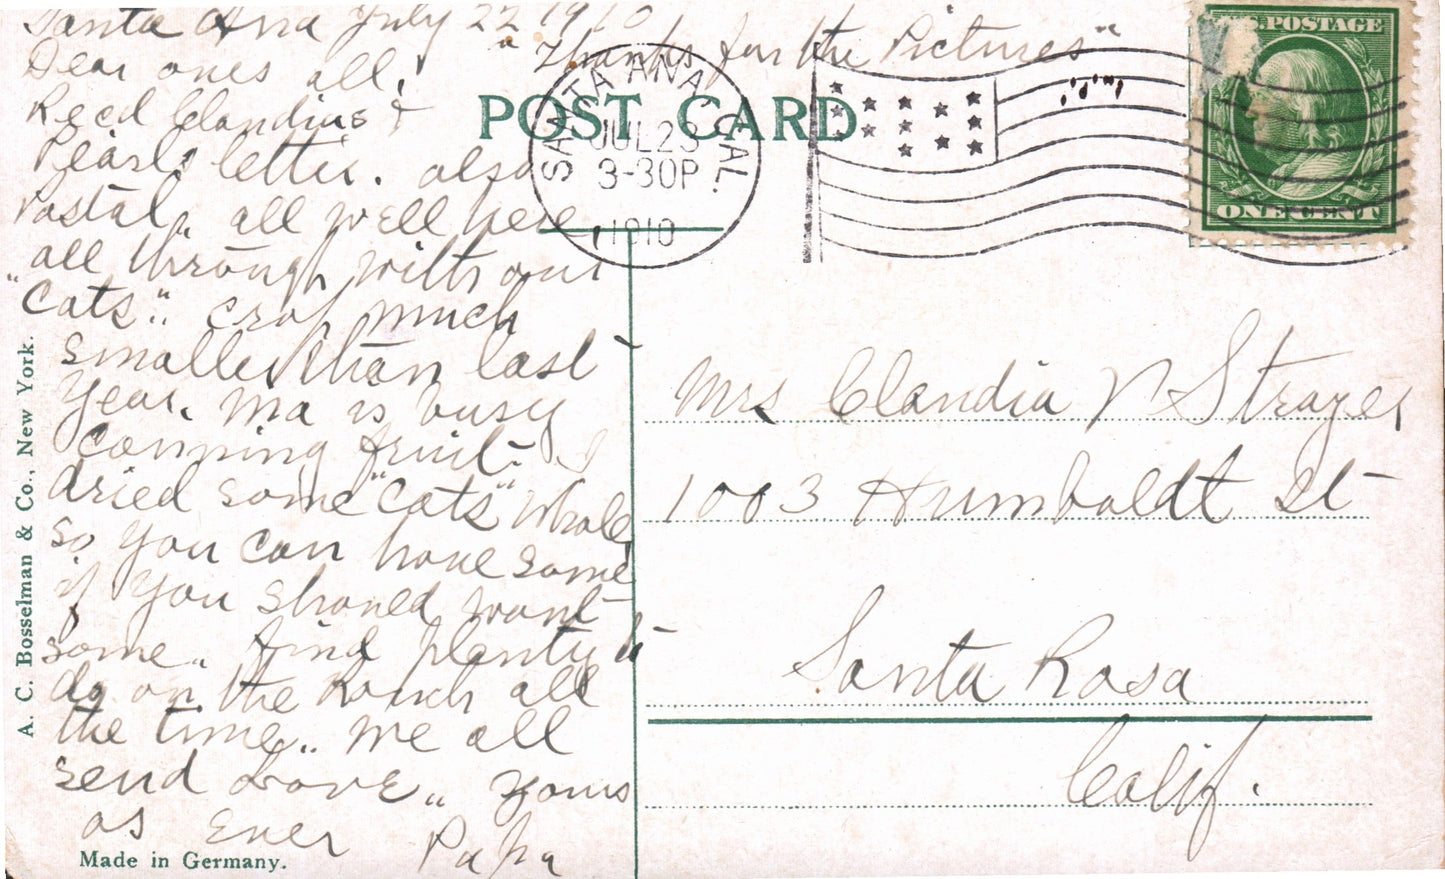 Santa Ana July 22 1910
"Thanks for the Pictures"
Dear ones all,
Recd Claudias &
Pearls letter. also
Postal. all well here
all through with our
"Cats". Crop much
smaller than last
year. Ma is busy
canning fruit. I
dried some "Cats" whole
so you can have some
if you should want
some. find plenty to
do on the Ranch all
the time. We all
send Love. Yours
as Ever Papa
POST CARD
SANTA ANA, CAL.
JUL 23
3-30P
1910
U.S. POSTAGE
ONE CENT
Mrs Claudia V Strayer
1003 Humboldt St
Santa Rosa
Calif.
A. C. Bosselman & Co., New York.
Made in Germany.